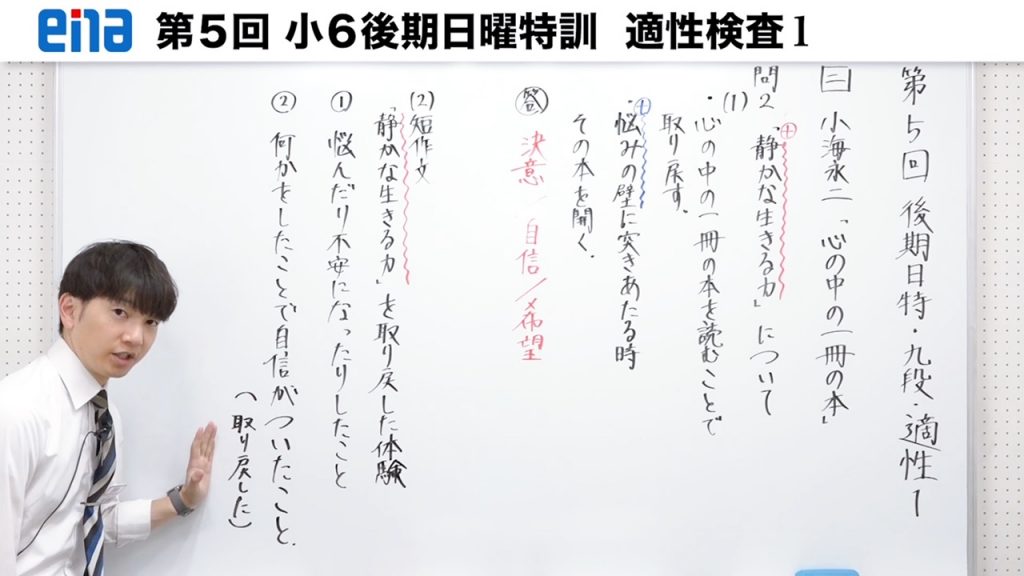 ena 第5回 小6後期日曜特訓 適性検査1
第5回 後期日特・九段・適性1
三 小海永二「心の中の一冊の本」
問2
(1)
⊕
「静かな生きる力」について
・心の中の一冊の本を読むことで
取り戻す。
⊕
・悩みの壁に突きあたる時
その本を開く。
答 決意/自信/希望
(2) 短作文
「静かな生きる力」を取り戻した体験
① 悩んだり不安になったりしたこと
② 何かをしたことで自信がついたこと。
(取り戻した)